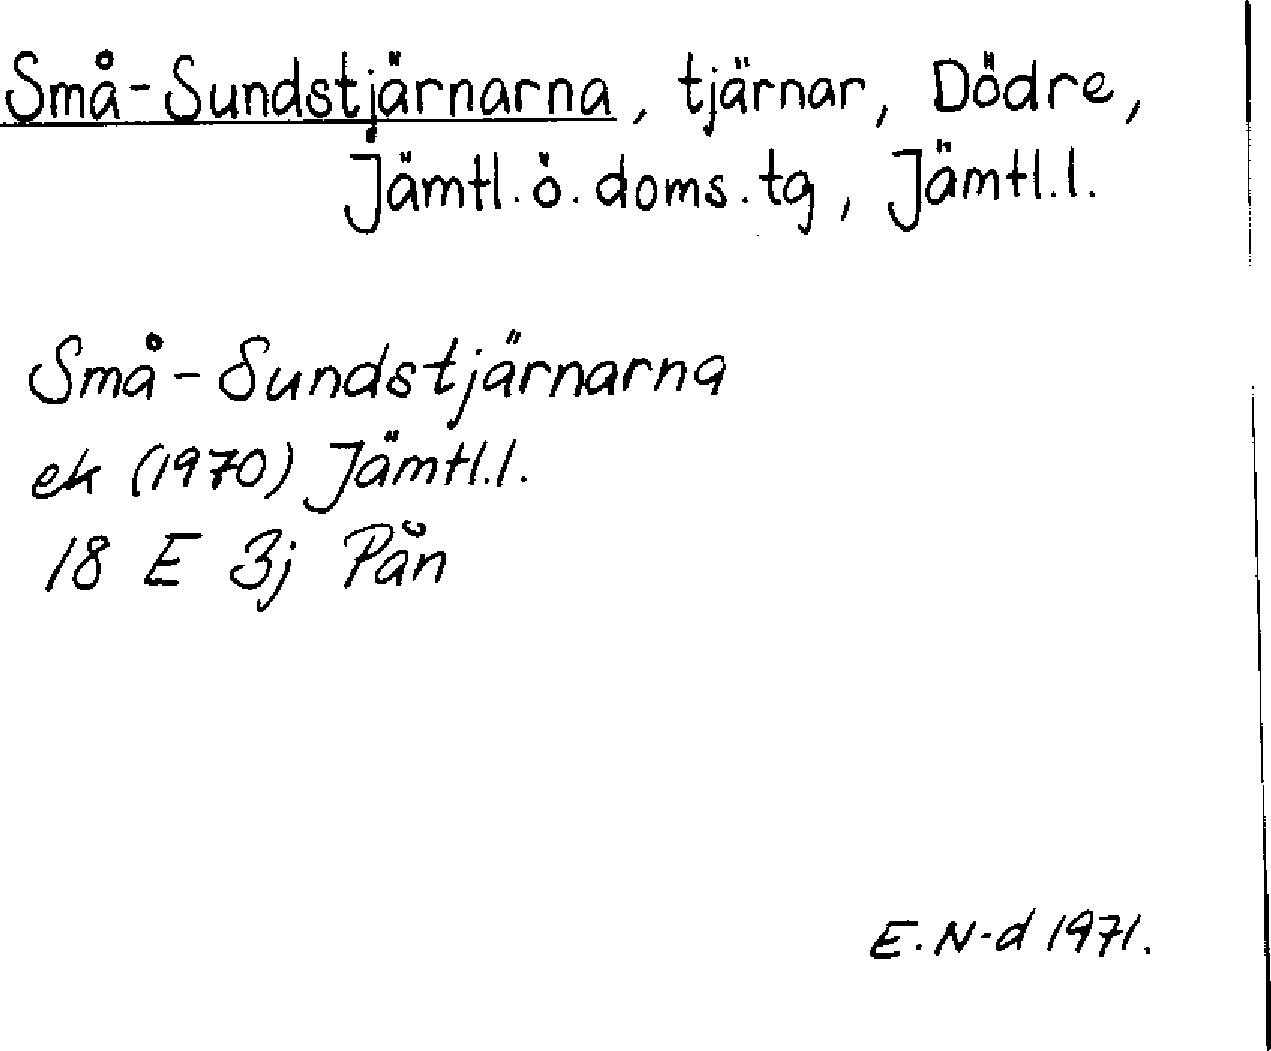 Små-Sundstjärnarna, tjärnar, Dödre,
Jämtl. ö. doms. tg, Jämtl.l.
Små-Sundstjärnarna
ek (1970) Jämtl.l.
18 E 3j Pån
E. N-d 1971.